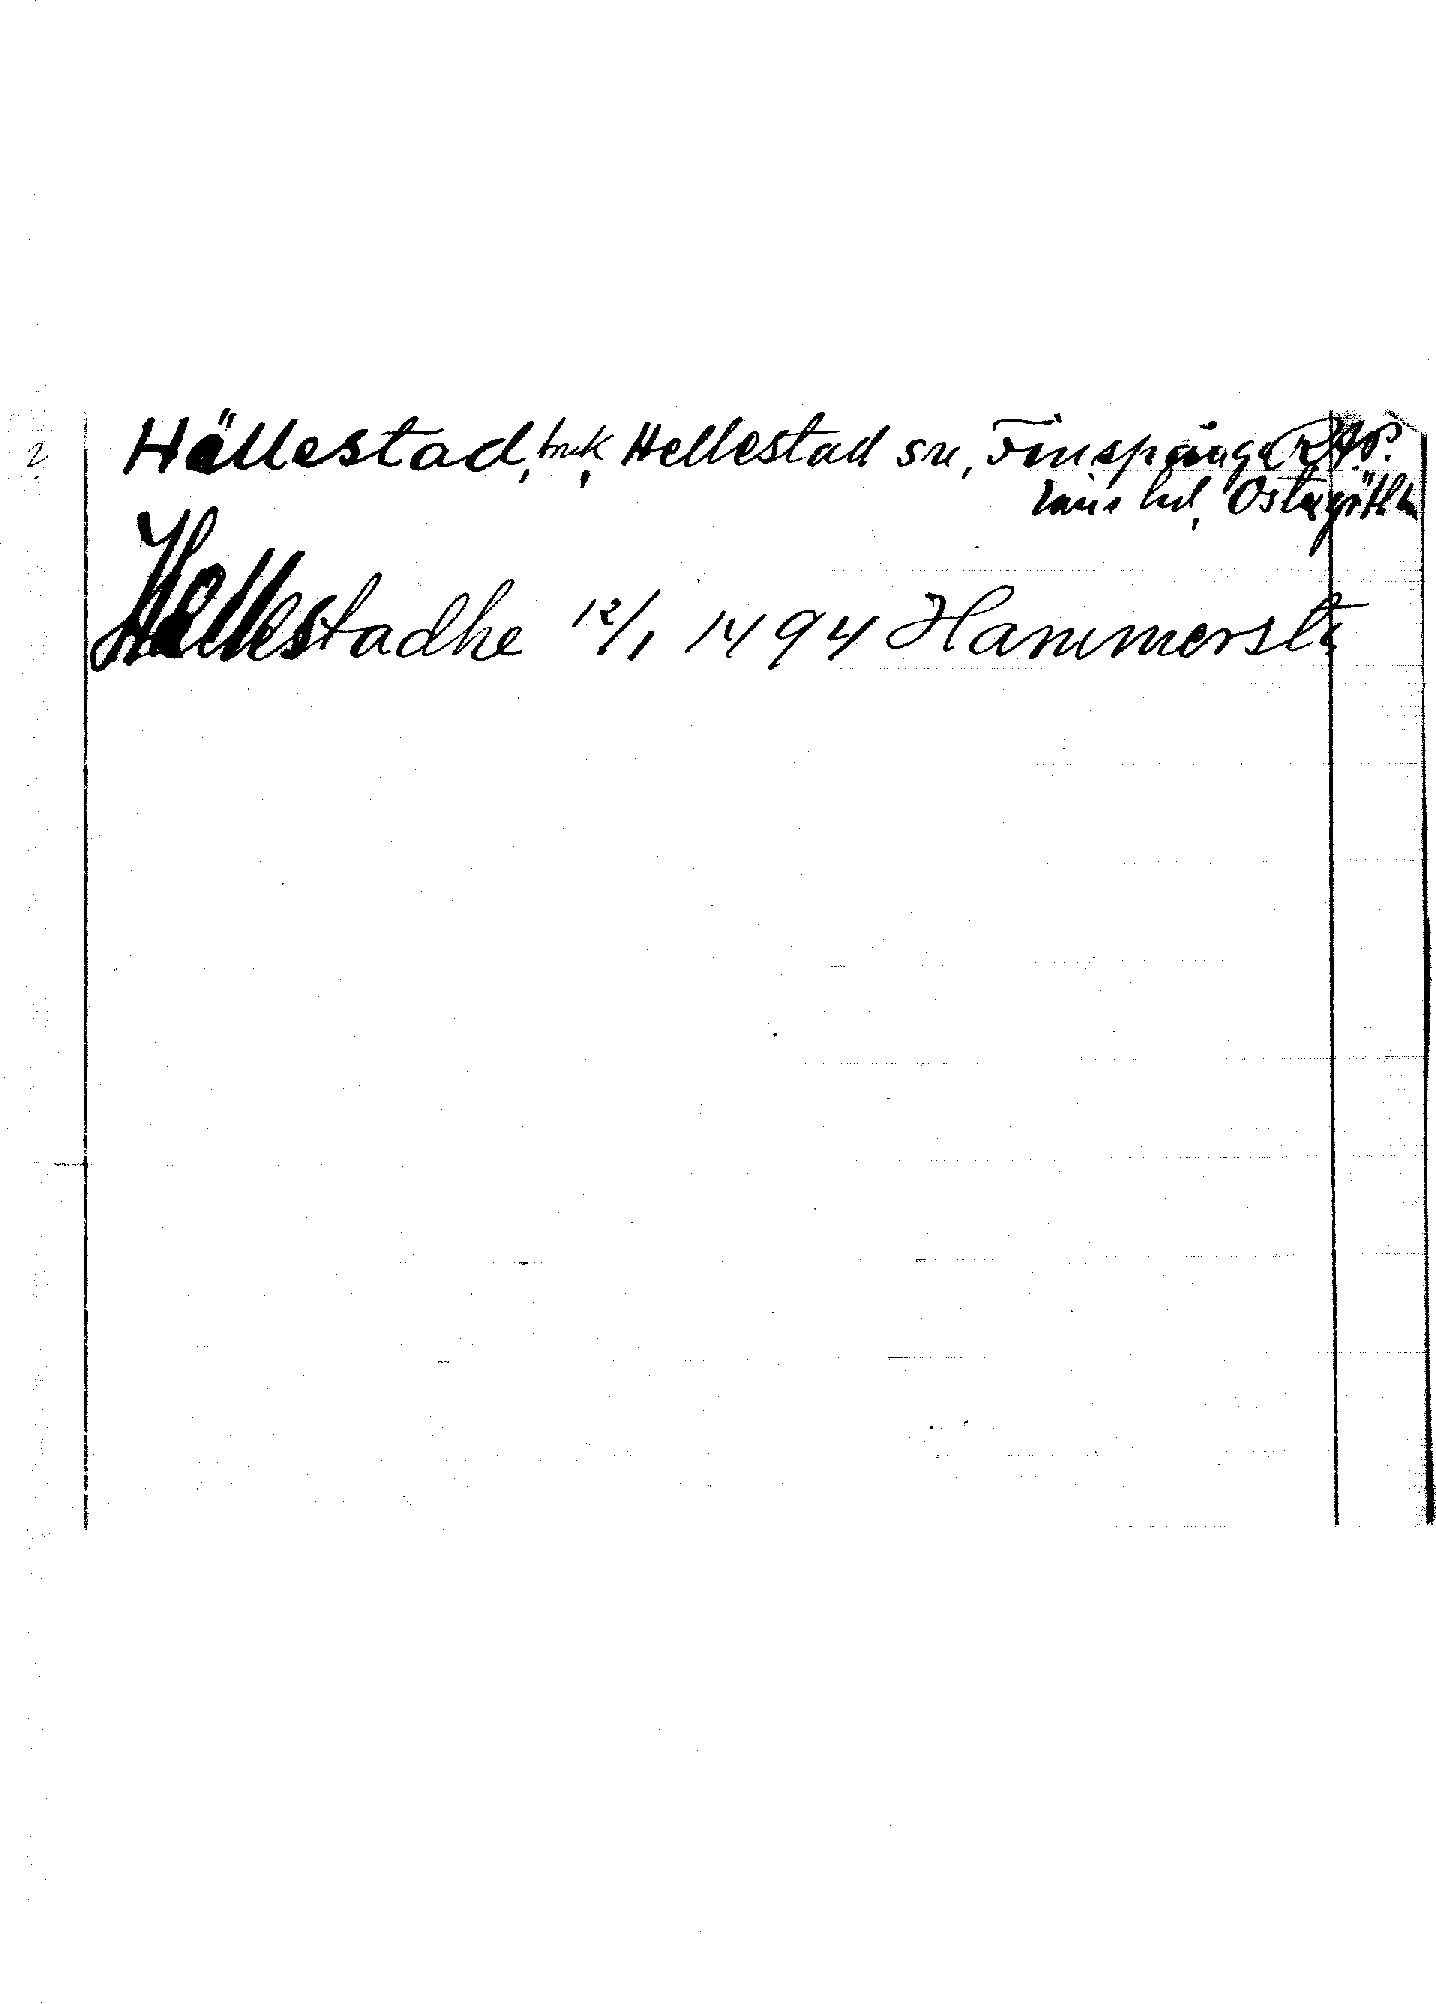 Hällestad, bruk, Hellestad sn, Finspånga RAp.
läns hd, Östergötl
Hellestadhe 12/1 1494 Hammersta